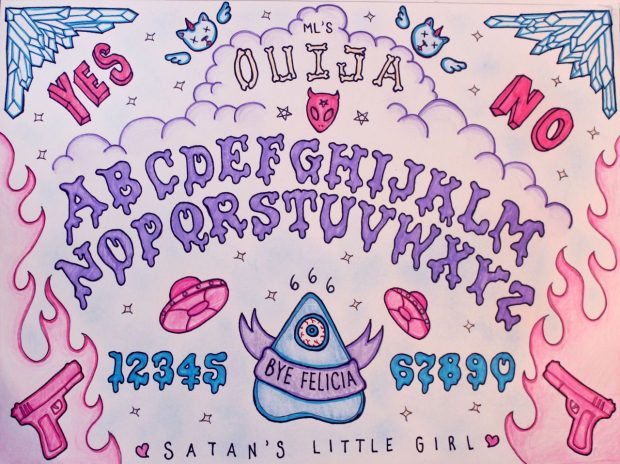 ML'S
OUIJA
YES
NO
ABCDEFGHIJKLM
NOPQRSTUVWXYZ
666
12345
BYE FELICIA
67890
SATAN'S LITTLE GIRL